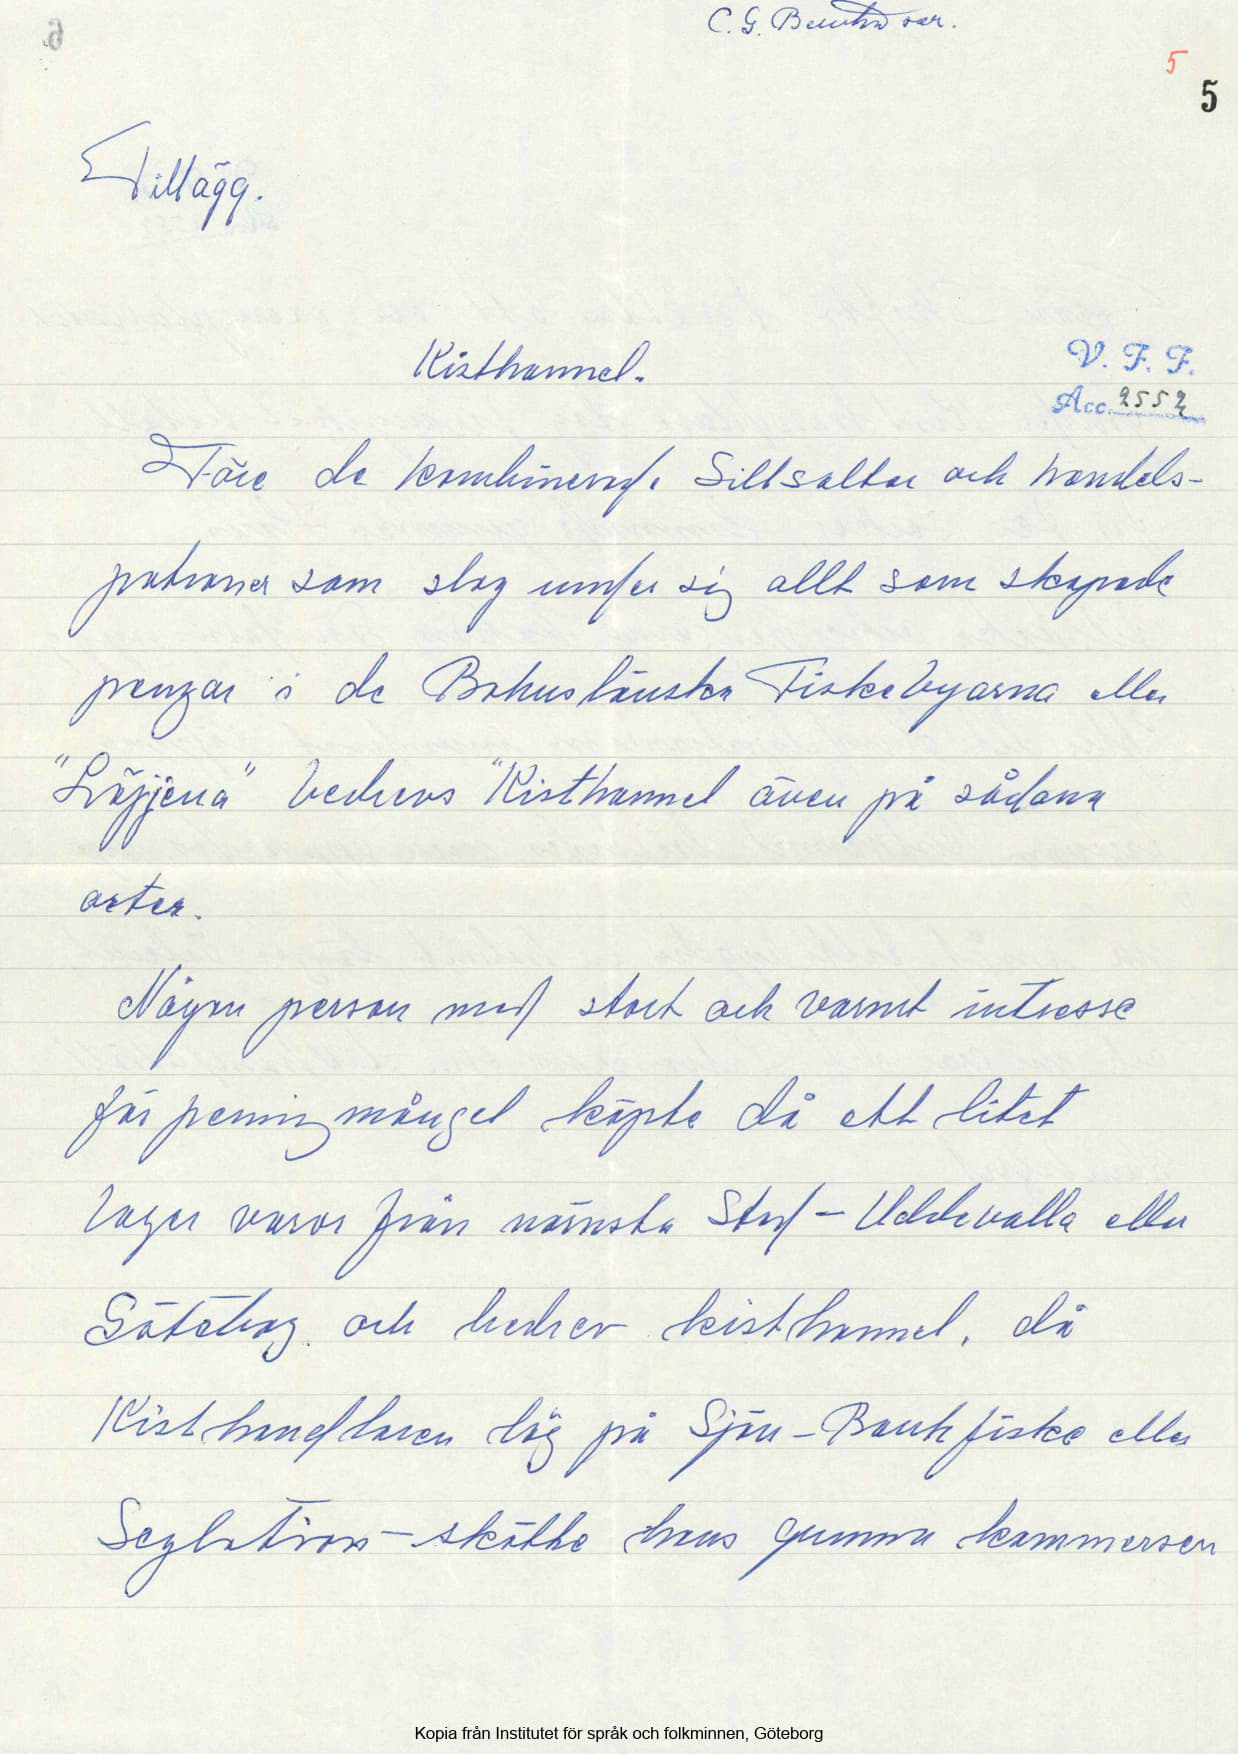 C. G. Bernhardson.
5
5
Tillägg.
Kisthannel.
V. F. F.
Acc. 2552
Före de kombinerade Sillsaltar och handels-
patroner som slog under sig allt som skapade
pengar i de Bohuslänska Fiskebyarna eller
"Läjjena" bedrevs "Kisthannel även på sådana
orter.
Någon person med stort och varmt intresse
för penningmångel köpte då ett litet
lager varor från närmsta Stad - Uddevalla eller
Göteborg. och bedrev kisthannel, då
Kisthandlaren låg på Sjön - Bankfiske eller
Seglation - skötte hans qvinna kommersen
Kopia från Institutet för språk och folkminnen, Göteborg